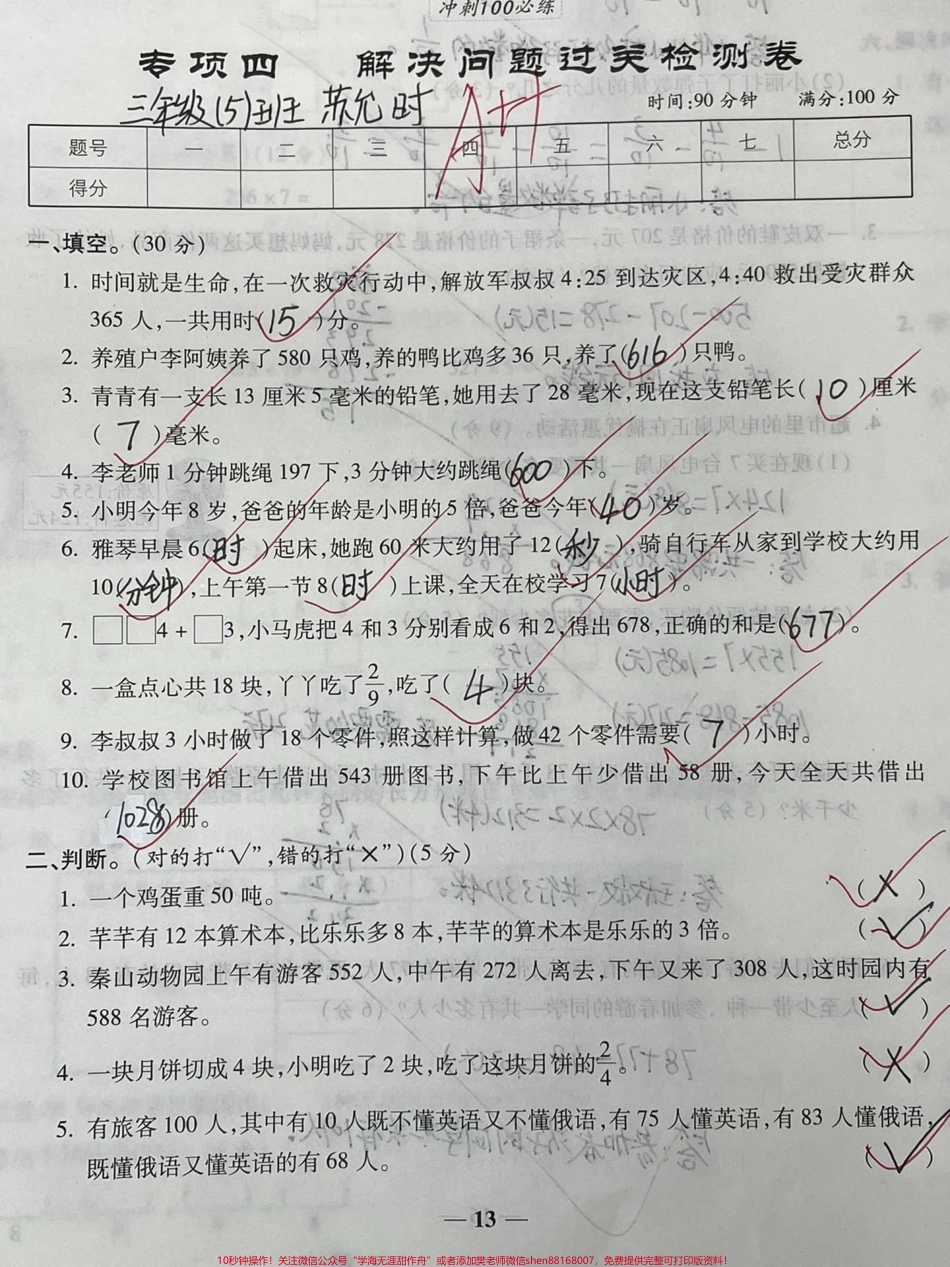 冲刺100必练
专项四 解决问题过关检测卷
三年级(5)班 苏允时
A+
时间:90分钟 满分:100分
题号 一 二 三 四 五 六 七 总分
得分
一、填空。(30分)
1. 时间就是生命,在一次救灾行动中,解放军叔叔4:25到达灾区,4:40救出受灾群众
365人,一共用时(15)分。
2. 养殖户李阿姨养了580只鸡,养的鸭比鸡多36只,养了(616)只鸭。
3. 青青有一支长13厘米5毫米的铅笔,她用去了28毫米,现在这支铅笔长(10)厘米
(7)毫米。
4. 李老师1分钟跳绳197下,3分钟大约跳绳(600)下。
5. 小明今年8岁,爸爸的年龄是小明的5倍,爸爸今年(40)岁。
6. 雅琴早晨6(时)起床,她跑60米大约用了12(秒),骑自行车从家到学校大约用
10(分钟),上午第一节8(时)上课,全天在校学习7(小时)。
7. □□4+□3,小马虎把4和3分别看成6和2,得出678,正确的和是(677)。
8. 一盒点心共18块,丫丫吃了2/9,吃了(4)块。
9. 李叔叔3小时做了18个零件,照这样计算,做42个零件需要(7)小时。
10. 学校图书馆上午借出543册图书,下午比上午少借出58册,今天全天共借出
(1028)册。
二、判断。(对的打“√”,错的打“×”)(5分)
1. 一个鸡蛋重50吨。 (×)
2. 芊芊有12本算术本,比乐乐多8本,芊芊的算术本是乐乐的3倍。 (√)
3. 秦山动物园上午有游客552人,中午有272人离去,下午又来了308人,这时园内有
588名游客。 (√)
4. 一块月饼切成4块,小明吃了2块,吃了这块月饼的2/4。 (×)
5. 有旅客100人,其中有10人既不懂英语又不懂俄语,有75人懂英语,有83人懂俄语,
既懂俄语又懂英语的有68人。 (√)
— 13 —
10秒钟操作!关注微信公众号“学海无涯甜作舟”或者添加樊老师微信shen88168007,免费提供完整可打印版资料!